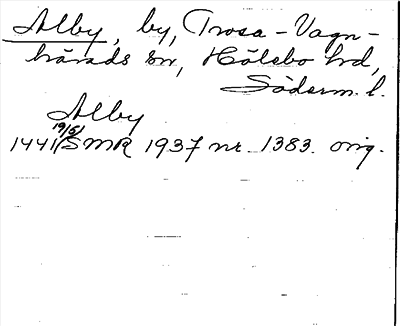 Alby, by, Trosa-Vagn-
härads sn, Hölebo hd,
Söderm. l.
Alby
1441 19/5 SMR 1937 nr 1383. orig.